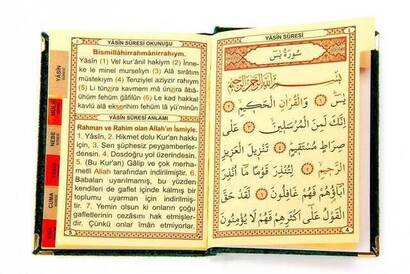 YÂSÎN SÛRESİ OKUNUŞU
Bismillâhirrahmânirrahıym.
Yâsîn (1) Vel kur'ânil hakiym (2) İnne-
ke le minel murseliyn (3) Alâ sırâtım
müstekıym (4) Tenziylel aziyzir rahıym
(5) Li tünzira kavmem mâ ünzira âbâ-
ühüm fehüm ğâfilûn (6) Le kad hakkal
kavlü alâ
YÂSÎN SÛRESİ ANLAMI
Rahman ve Rahim olan Allah'ın İsmiyle.
1. Yâsîn, 2. Hikmet dolu Kur'an hakkı
için, 3. Sen şüphesiz peygamberler-
densin. 4. Dosdoğru yol üzerindesin.
5. (Bu Kur'an) Gâlip ve çok merha-
metli Allah tarafından indirilmiştir. 6.
Babaları uyarılmamış, bu yüzden
kendileri de gaflet içinde kalmış bir
toplumu uyarman için indirilmiş-
tir. 7. Yemin olsun ki onların çoğu
gafletlerinin cezasını hak etmişler-
dir. Çünkü onlar îman etmiyorlar.
YÂSÎN
CUMA
YÂSİN SÛRESİ
سُورَةُ يٰسٓ
بِسْمِ اللهِ الرَّحْمٰنِ الرَّحِيمِ
يٰسٓ ﴿١﴾ وَالْقُرْاٰنِ الْحَكِيمِ ﴿٢﴾
اِنَّكَ لَمِنَ الْمُرْسَلِينَ ﴿٣﴾ عَلٰى
صِرَاطٍ مُسْتَقِيمٍ ﴿٤﴾ تَنْزِيلَ الْعَزِيزِ
الرَّحِيمِ ﴿٥﴾ لِتُنْذِرَ قَوْمًا مَٓا اُنْذِرَ
اٰبَٓاؤُهُمْ فَهُمْ غَافِلُونَ ﴿٦﴾ لَقَدْ حَقَّ
الْقَوْلُ عَلٰٓى اَكْثَرِهِمْ فَهُمْ لَا يُؤْمِنُونَ
4